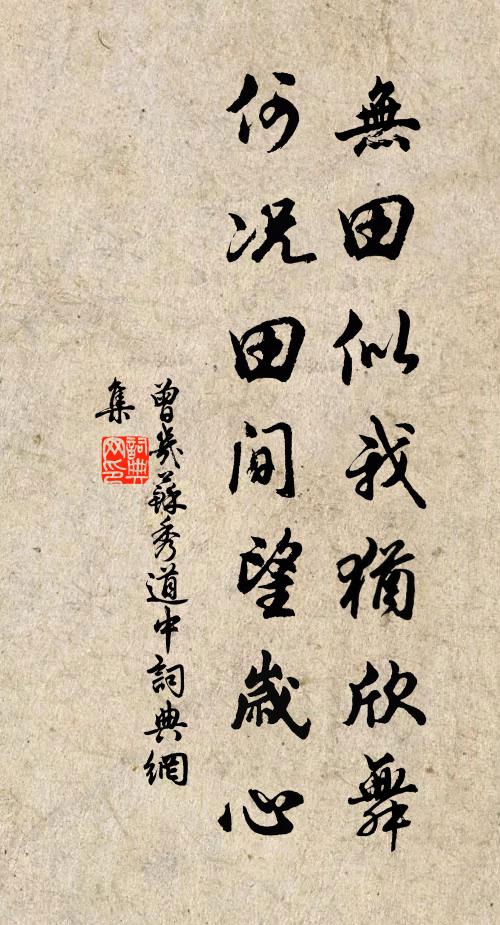 無田似我猶欣舞
何况田間望歲心
曾幾蘇秀道中詞典網
集
詞典網印